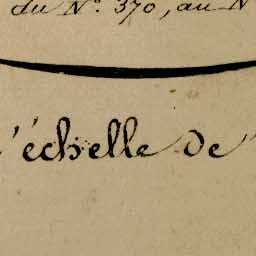 du N.º 370, au N
l'échelle de